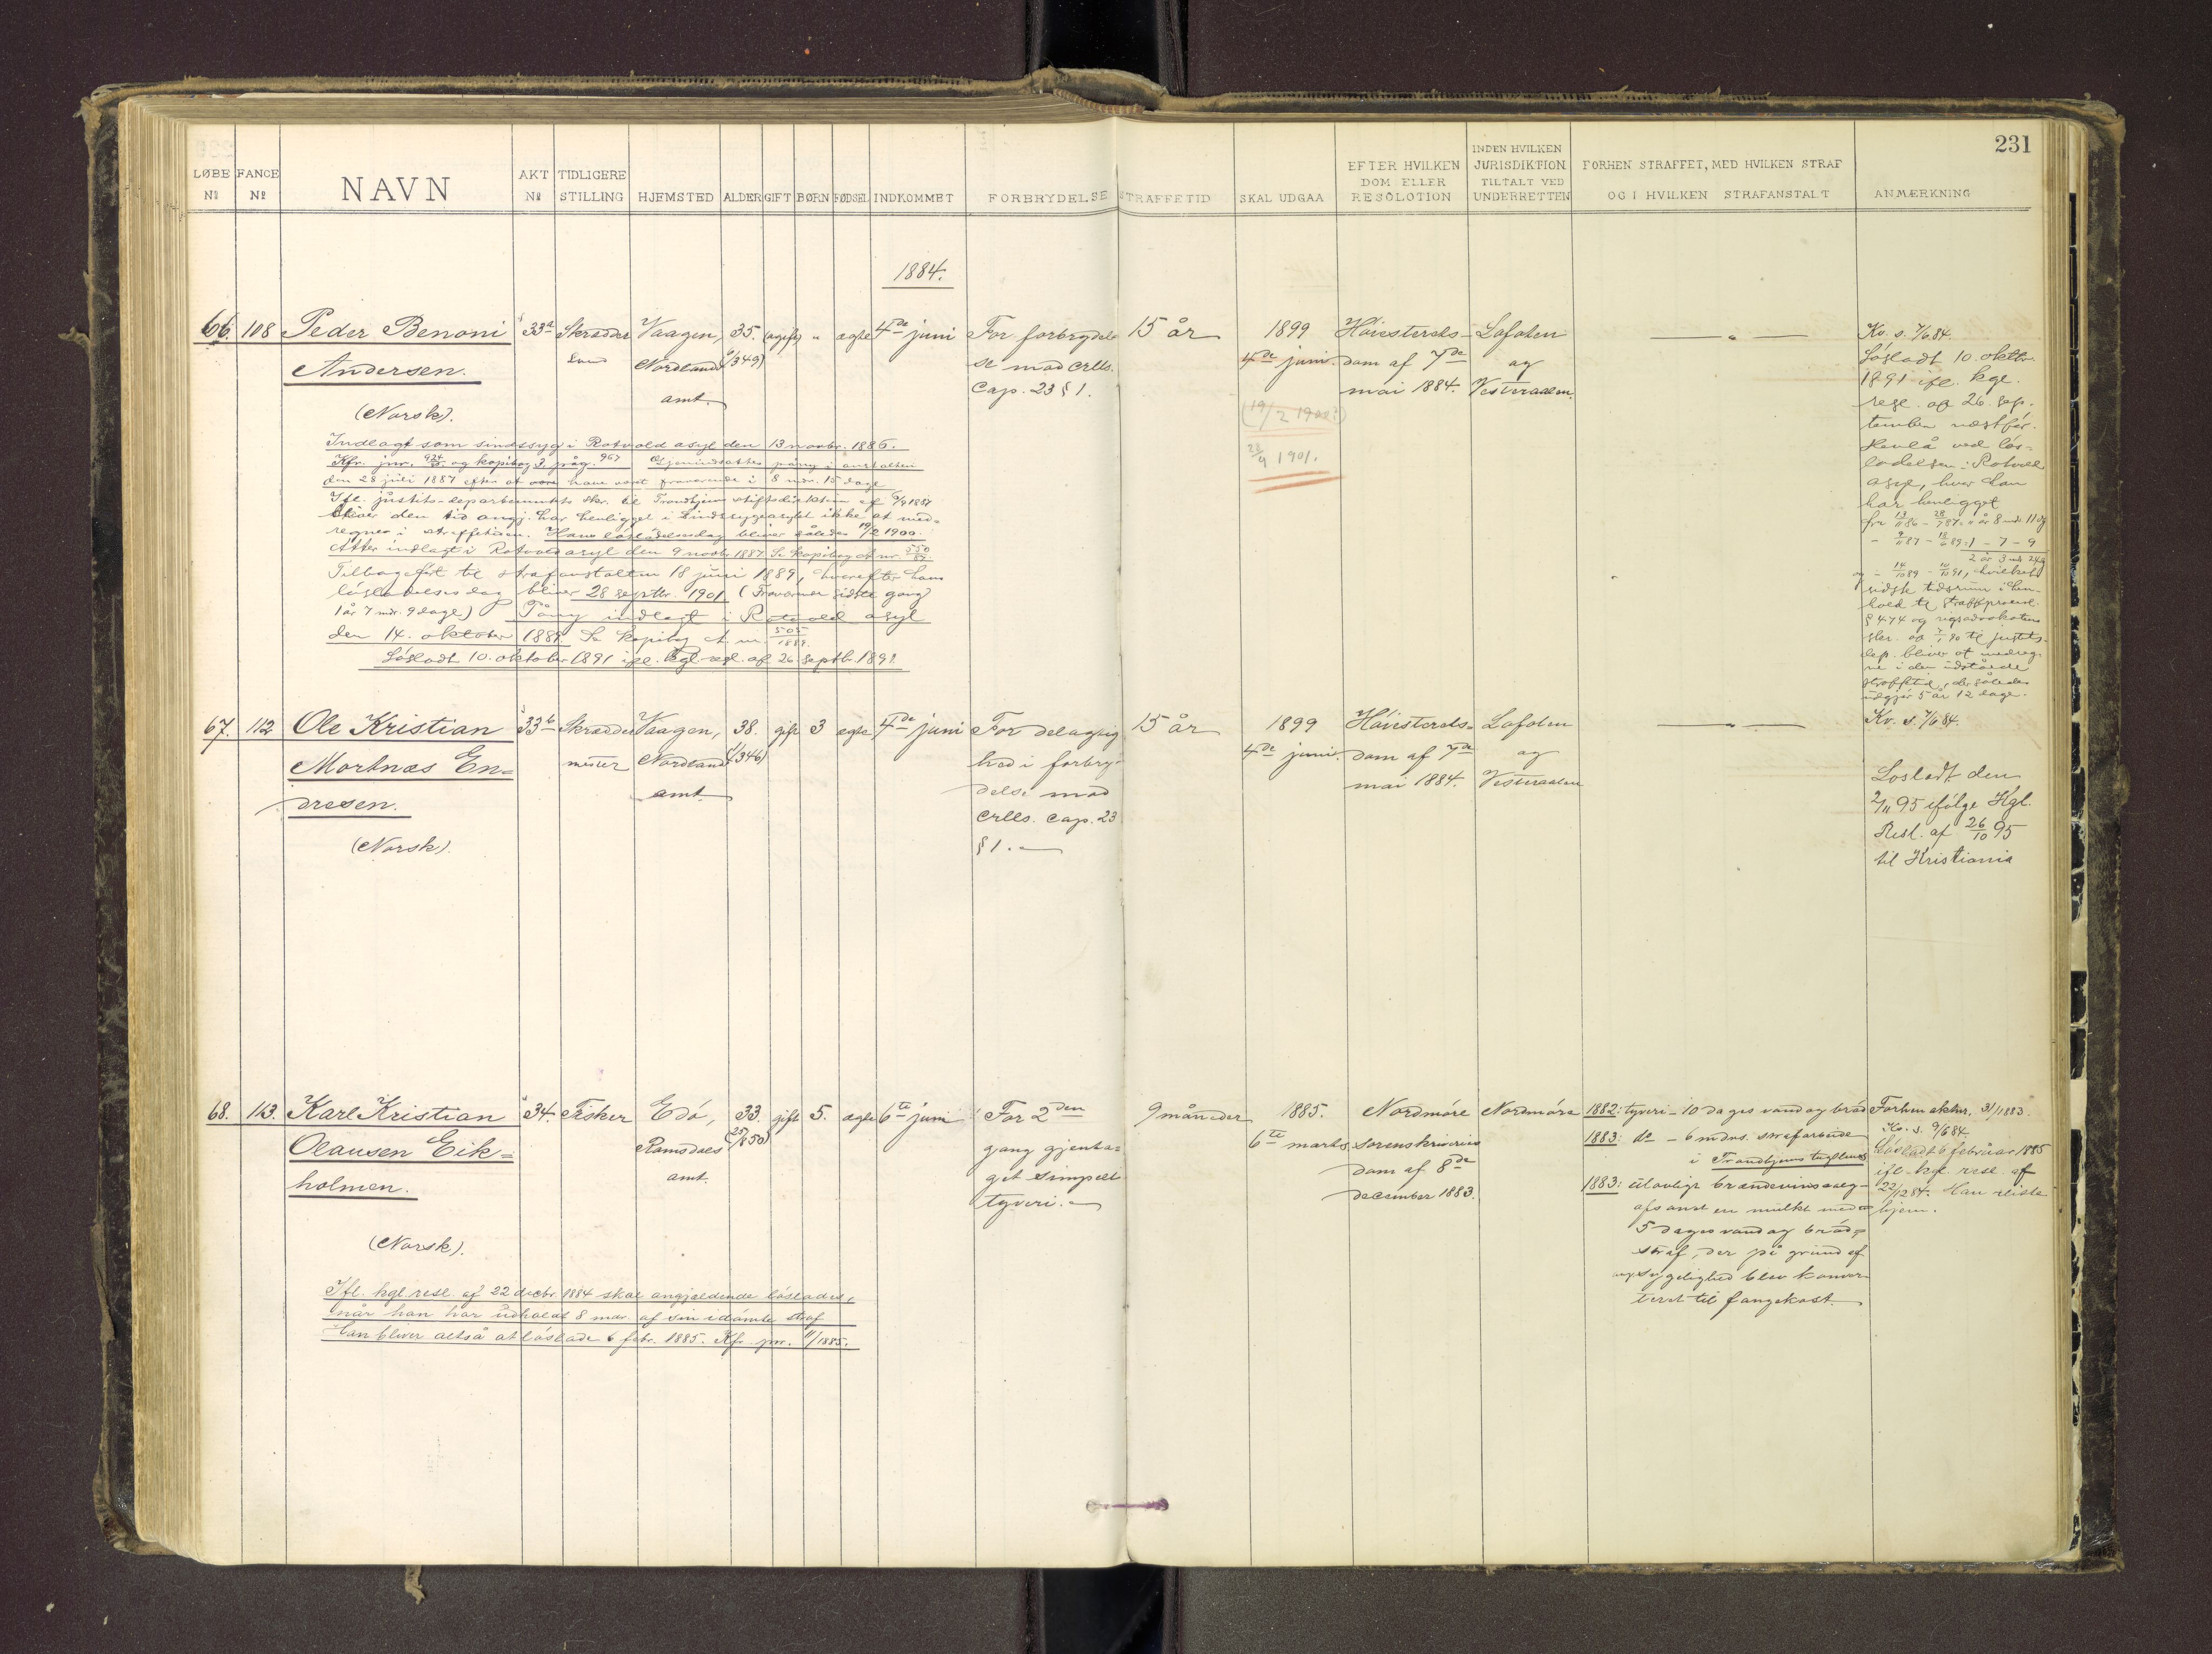 231
LØBE No
FANGE No
NAVN
AKT No
TIDLIGERE STILLING
HJEMSTED
ALDER
GIFT
BØRN
FØDSEL
INDKOMMET
FORBRYDELSE
STRAFFETID
SKAL UDGAA
EFTER HVILKEN DOM ELLER RESOLOTION
INDEN HVILKEN JURISDIKTION TILTALT VED UNDERRETTEN
FORHEN STRAFFET, MED HVILKEN STRAF OG I HVILKEN STRAFANSTALT
ANMÆRKNING
1884.
66. 108 Peder Benoni
Andersen.
(Norsk).
33a
Skrædder
svend
Vaagen,
Nordlands
amt.
35.
ugift
"
ægte
4de juni
For forbrydel-
se mod Crlls.
Cap. 23 § 1.
15 år
1899
4de juni.
(19/2 1900)
28/9 1901.
Høiesterets-
dom af 7de
mai 1884.
Lofoten
og
Vesteraalen.
— " —
Kv. s. 7/6 84.
Løsladt 10. oktbr.
1891 ifl. kgl.
resl. af 26. sep-
tember næstfør.
Henlå ved løs-
ladelsen i Rotvold
asyl, hvor han
har henligget
fra 13/11 86 - 28/7 87 = " år 8 mdr 11 dg
- 9/11 87 - 18/6 89 = 1 - 7 - 9
2 år 3 mdr
og - 14/10 89 - 10/10 91, hvilket
sidste tidsrum i hen-
hold til straffprocesl.
§ 474 og rigsadvokatens
skr. af til justits-
dep. bliver at medreg-
ne i den udståede
straffetid, der således
udgjør 5 år 12 dage.
Indlagt som sindssyg i Rotvold asyl den 13 novbr. 1886.
Kfr. jnr. og kopibog 3. påg. 967 Gjenindsattes påny i anstalten
den 28 juli 1887 efter at have vært fraværende i 8 mdr. 15 dage
Ifl. justits-departementets skr. til Trondhjems stiftsdirektion af 1887
bliver den tid angj. har henligget i sindssygeasylet ikke at med-
regnes i straffetiden. Hans løsladelsesdag bliver således 19/2 1900.
Atter indlagt i Rotvold asyl den 9 novbr. 1887. Se kopibog A nr. 550/87.
Tilbageført til strafanstalten 18 juni 1889, hvorefter hans
løsladelsesdag bliver 28 septbr. 1901 (Fraværende sidste gang
1 år 7 mdr. 9 dage) Påny indlagt i Rotvold asyl
den 14. oktober 1889. Se kopibog A nr. 505/1889.
Løsladt 10. oktober 1891 ifl. kgl. resl. af 26. septbr. 1891.
67. 112 Ole Kristian
Mortnæs En-
dresen.
(Norsk).
33b
Skrædder
mester
Vaagen,
Nordlands
amt.
38.
(1/346)
gift
3
ægte
4de juni
For delagtig
hed i forbry-
delse mod
Crlls. Cap. 23
§ 1. —
15 år
1899
4de juni.
Høiesterets-
dom af 7de
mai 1884.
Lofoten
og
Vesteraalen
— " —
Kv. s. 7/6 84.
Løsladt den
2/11 95 ifølge Kgl.
Resl. af 26/10 95
til Kristiania
68. 113. Karl Kristian
Olausen Eik-
holmen.
(Norsk).
34.
Fisker
Edø,
Romsdals
amt.
33.
(25/850)
gift
5.
ægte
6te juni
For 2den
gang gjenta-
get simpelt
tyveri. —
9 måneder
1885.
6te marts.
Nordmøre
sorenskriveries
dom af 8de
december 1883.
Nordmøre
1882: tyveri - 10 dages vand og brød
1883: do - 6 mdrs. strafarbeide
i Trondhjems tugthus
1883: ulovligt brændevinssalg -
afsonet en mulkt med
5 dages vand og brød-
straf, der på grund af
sygelighed blev konver-
teret til fangekost.
Forhen aktnr. 31/1883.
Kv. s. 9/6 84
Løsladt 6 februar 1885
ifl. kgl. resl. af
22/12 84. Han reiste
hjem.
Ifl. kgl. resl. af 22 decbr. 1884 skal angjældende løslades,
når han har udholdt 8 mdr. af sin idømte straf
Han bliver altså at løslade 6 febr. 1885. Kfr. jnr. 11/1885.